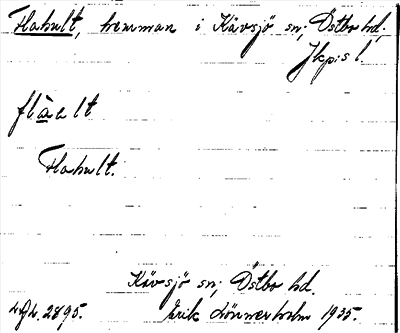 Flahult, hemman i Kävsjö sn; Östbo hd.;
Jkp:s l.
flàalt
Flahult.
Kävsjö sn; Östbo hd.
2895. Erik Lönnerholm 1935.